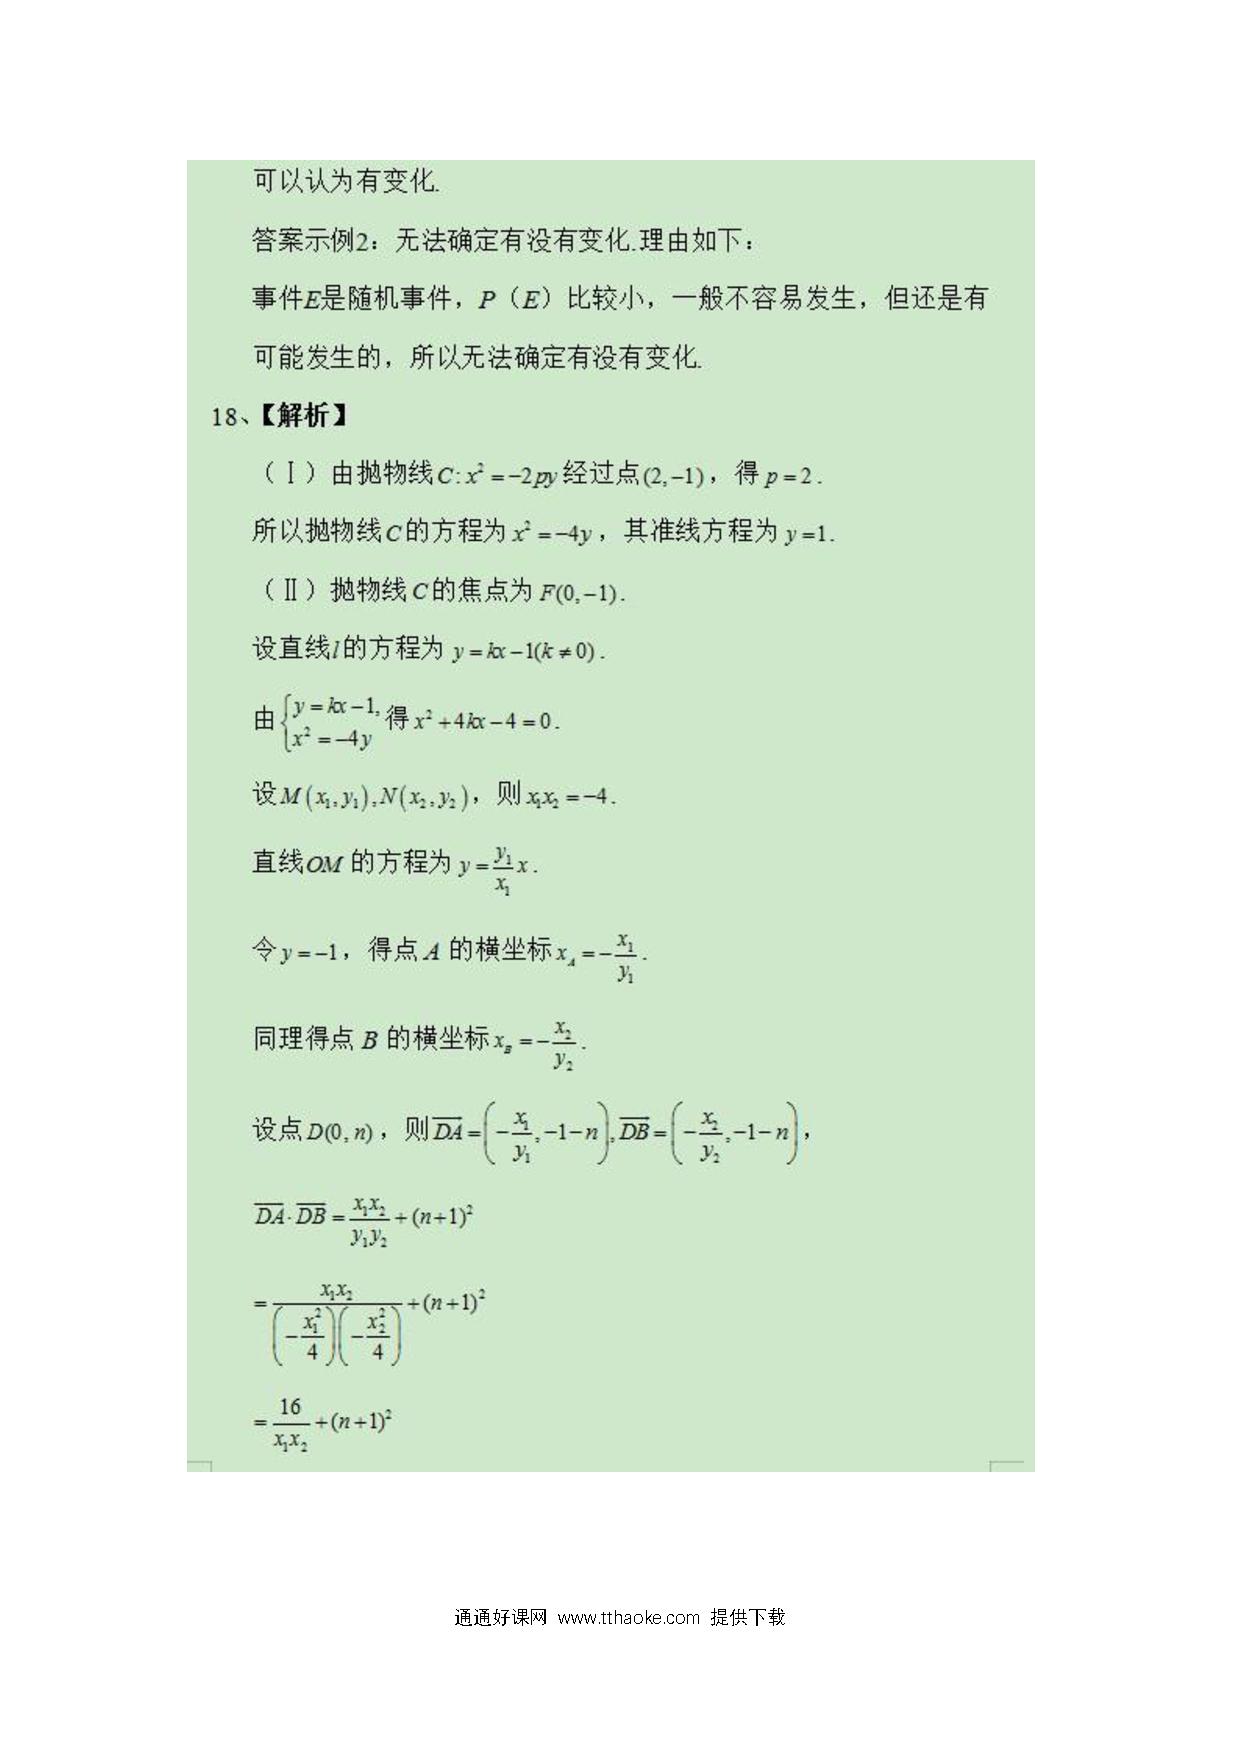 可以认为有变化.
答案示例2：无法确定有没有变化.理由如下：
事件E是随机事件，P（E）比较小，一般不容易发生，但还是有
可能发生的，所以无法确定有没有变化.
18、【解析】
（Ⅰ）由抛物线C:x²=−2py经过点(2,−1)，得p=2.
所以抛物线C的方程为x²=−4y，其准线方程为y=1.
（Ⅱ）抛物线C的焦点为F(0,−1).
设直线l的方程为y=kx−1(k≠0).
由{y=kx−1, x²=−4y 得x²+4kx−4=0.
设M(x₁,y₁),N(x₂,y₂)，则x₁x₂=−4.
直线OM的方程为y=y₁/x₁ x.
令y=−1，得点A的横坐标x_A=−x₁/y₁.
同理得点B的横坐标x_B=−x₂/y₂.
设点D(0,n)，则DA=(−x₁/y₁,−1−n),DB=(−x₂/y₂,−1−n)，
DA·DB=x₁x₂/y₁y₂+(n+1)²
=x₁x₂/(−x₁²/4)(−x₂²/4)+(n+1)²
=16/x₁x₂+(n+1)²
通通好课网 www.tthaoke.com 提供下载